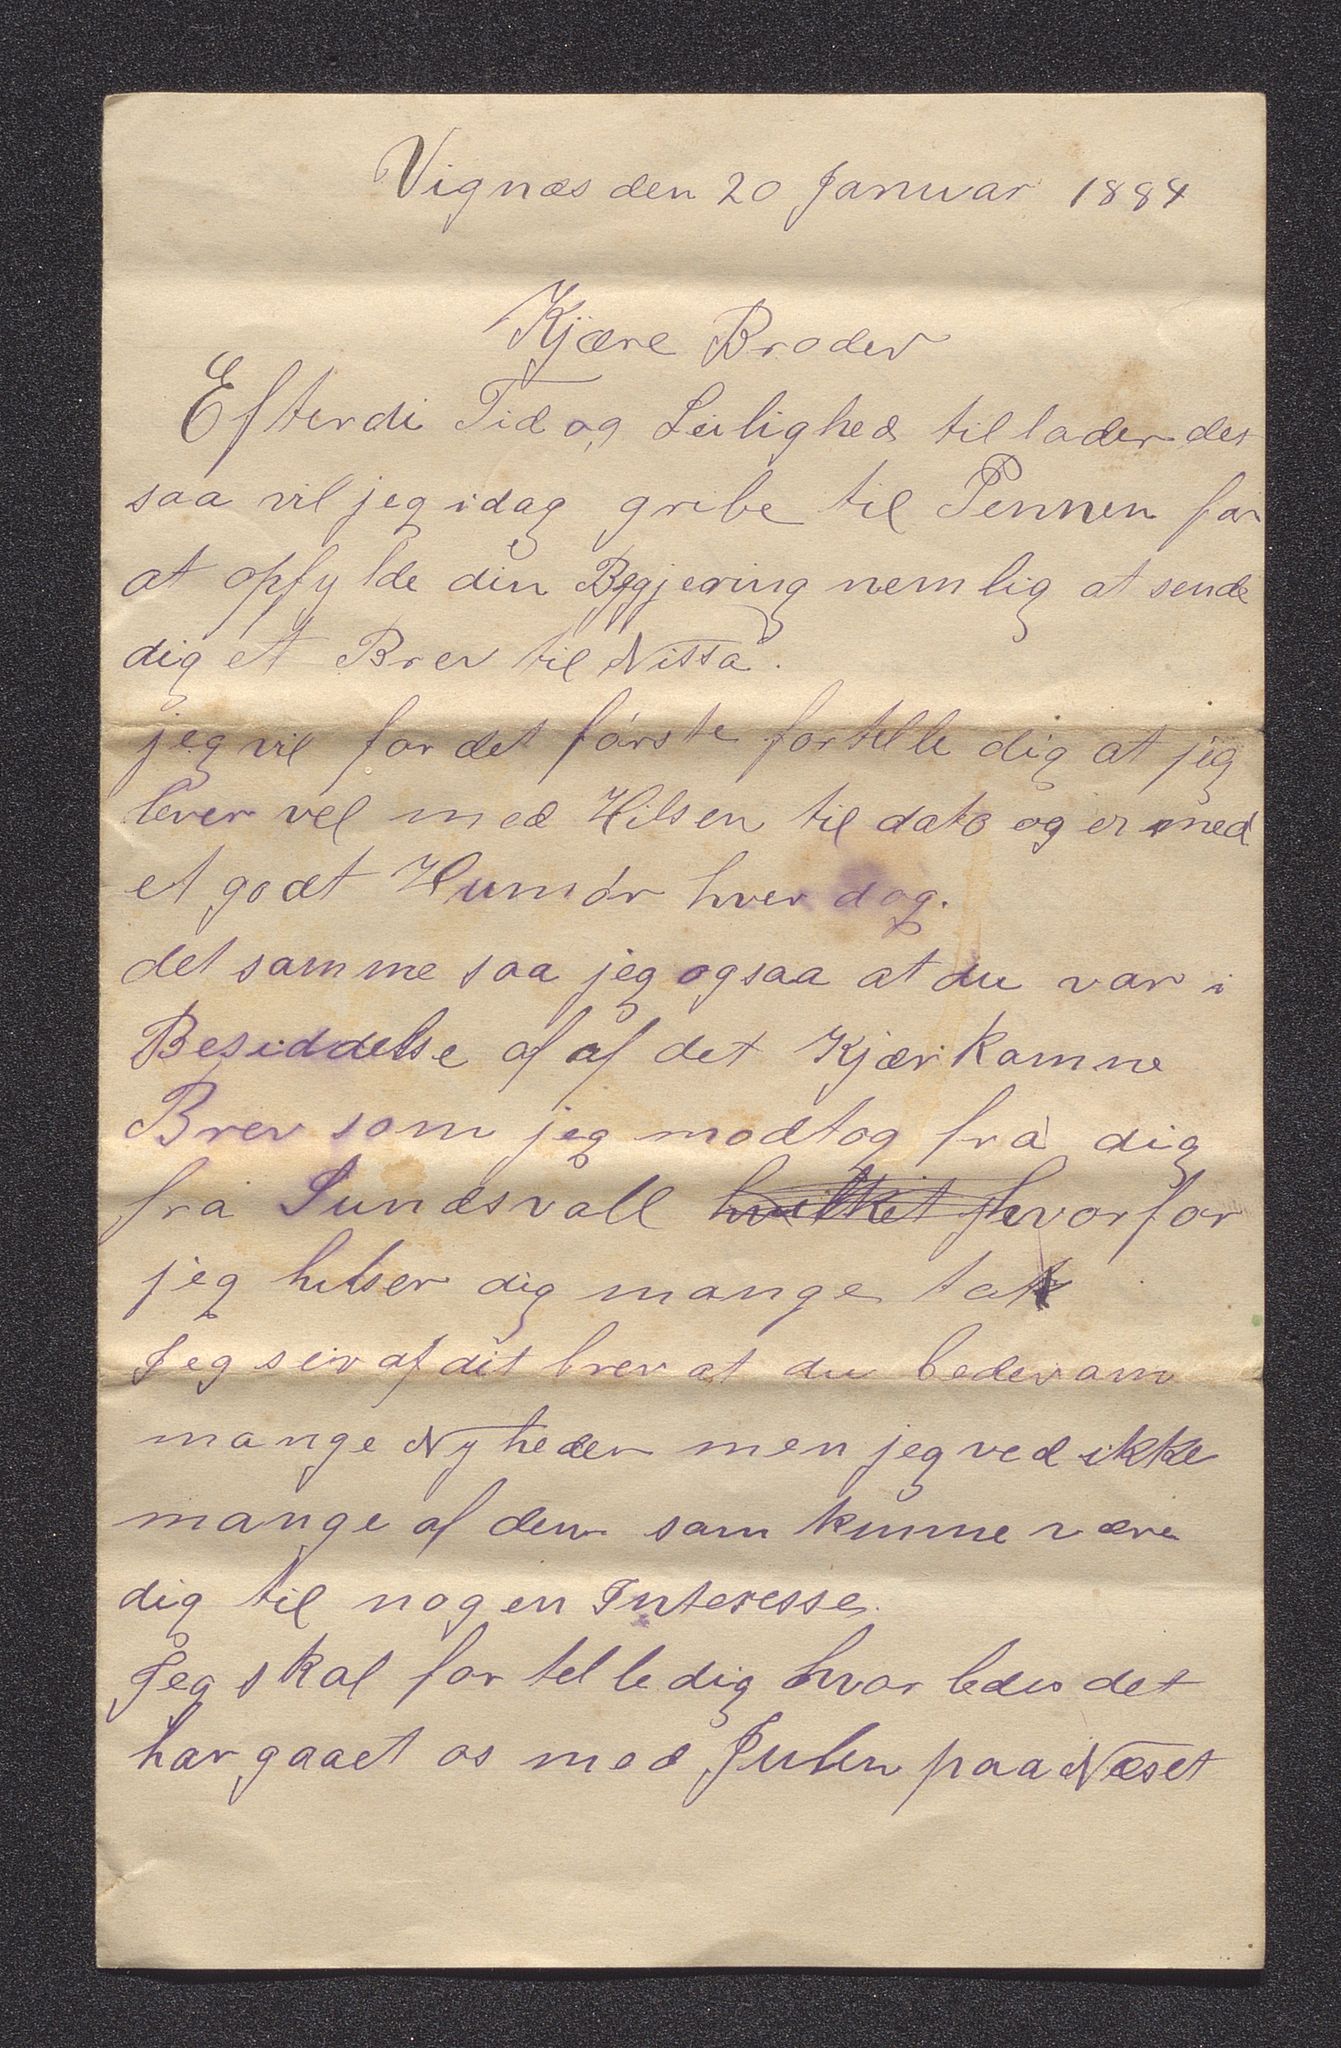 Vignæs den 20 Januar 1884
Kjære Broder
Efterdi Tid og Leilighed tillader det
saa vil jeg idag gribe til Pennen for
at opfylde din Begjering nemlig at sende
dig et Brev til Nissa.
jeg vil for det første fortelle dig at jeg
lever vel med Hilsen til dato og er med
et godt Humør hver dag.
det samme saa jeg ogsaa at du var i
Besiddelse af af det Kjærkomne
Brev som jeg modtog fra dig
fra Sundsvall hvilket hvorfor
jeg hilser dig mange tak
Jeg seir af dit brev at du beder om
mange Nyheder men jeg ved ikke
mange af dem som kunne være
dig til nogen Interesse.
Jeg skal fortelle dig hvorledes det
har gaaet os med Julen paa Næset